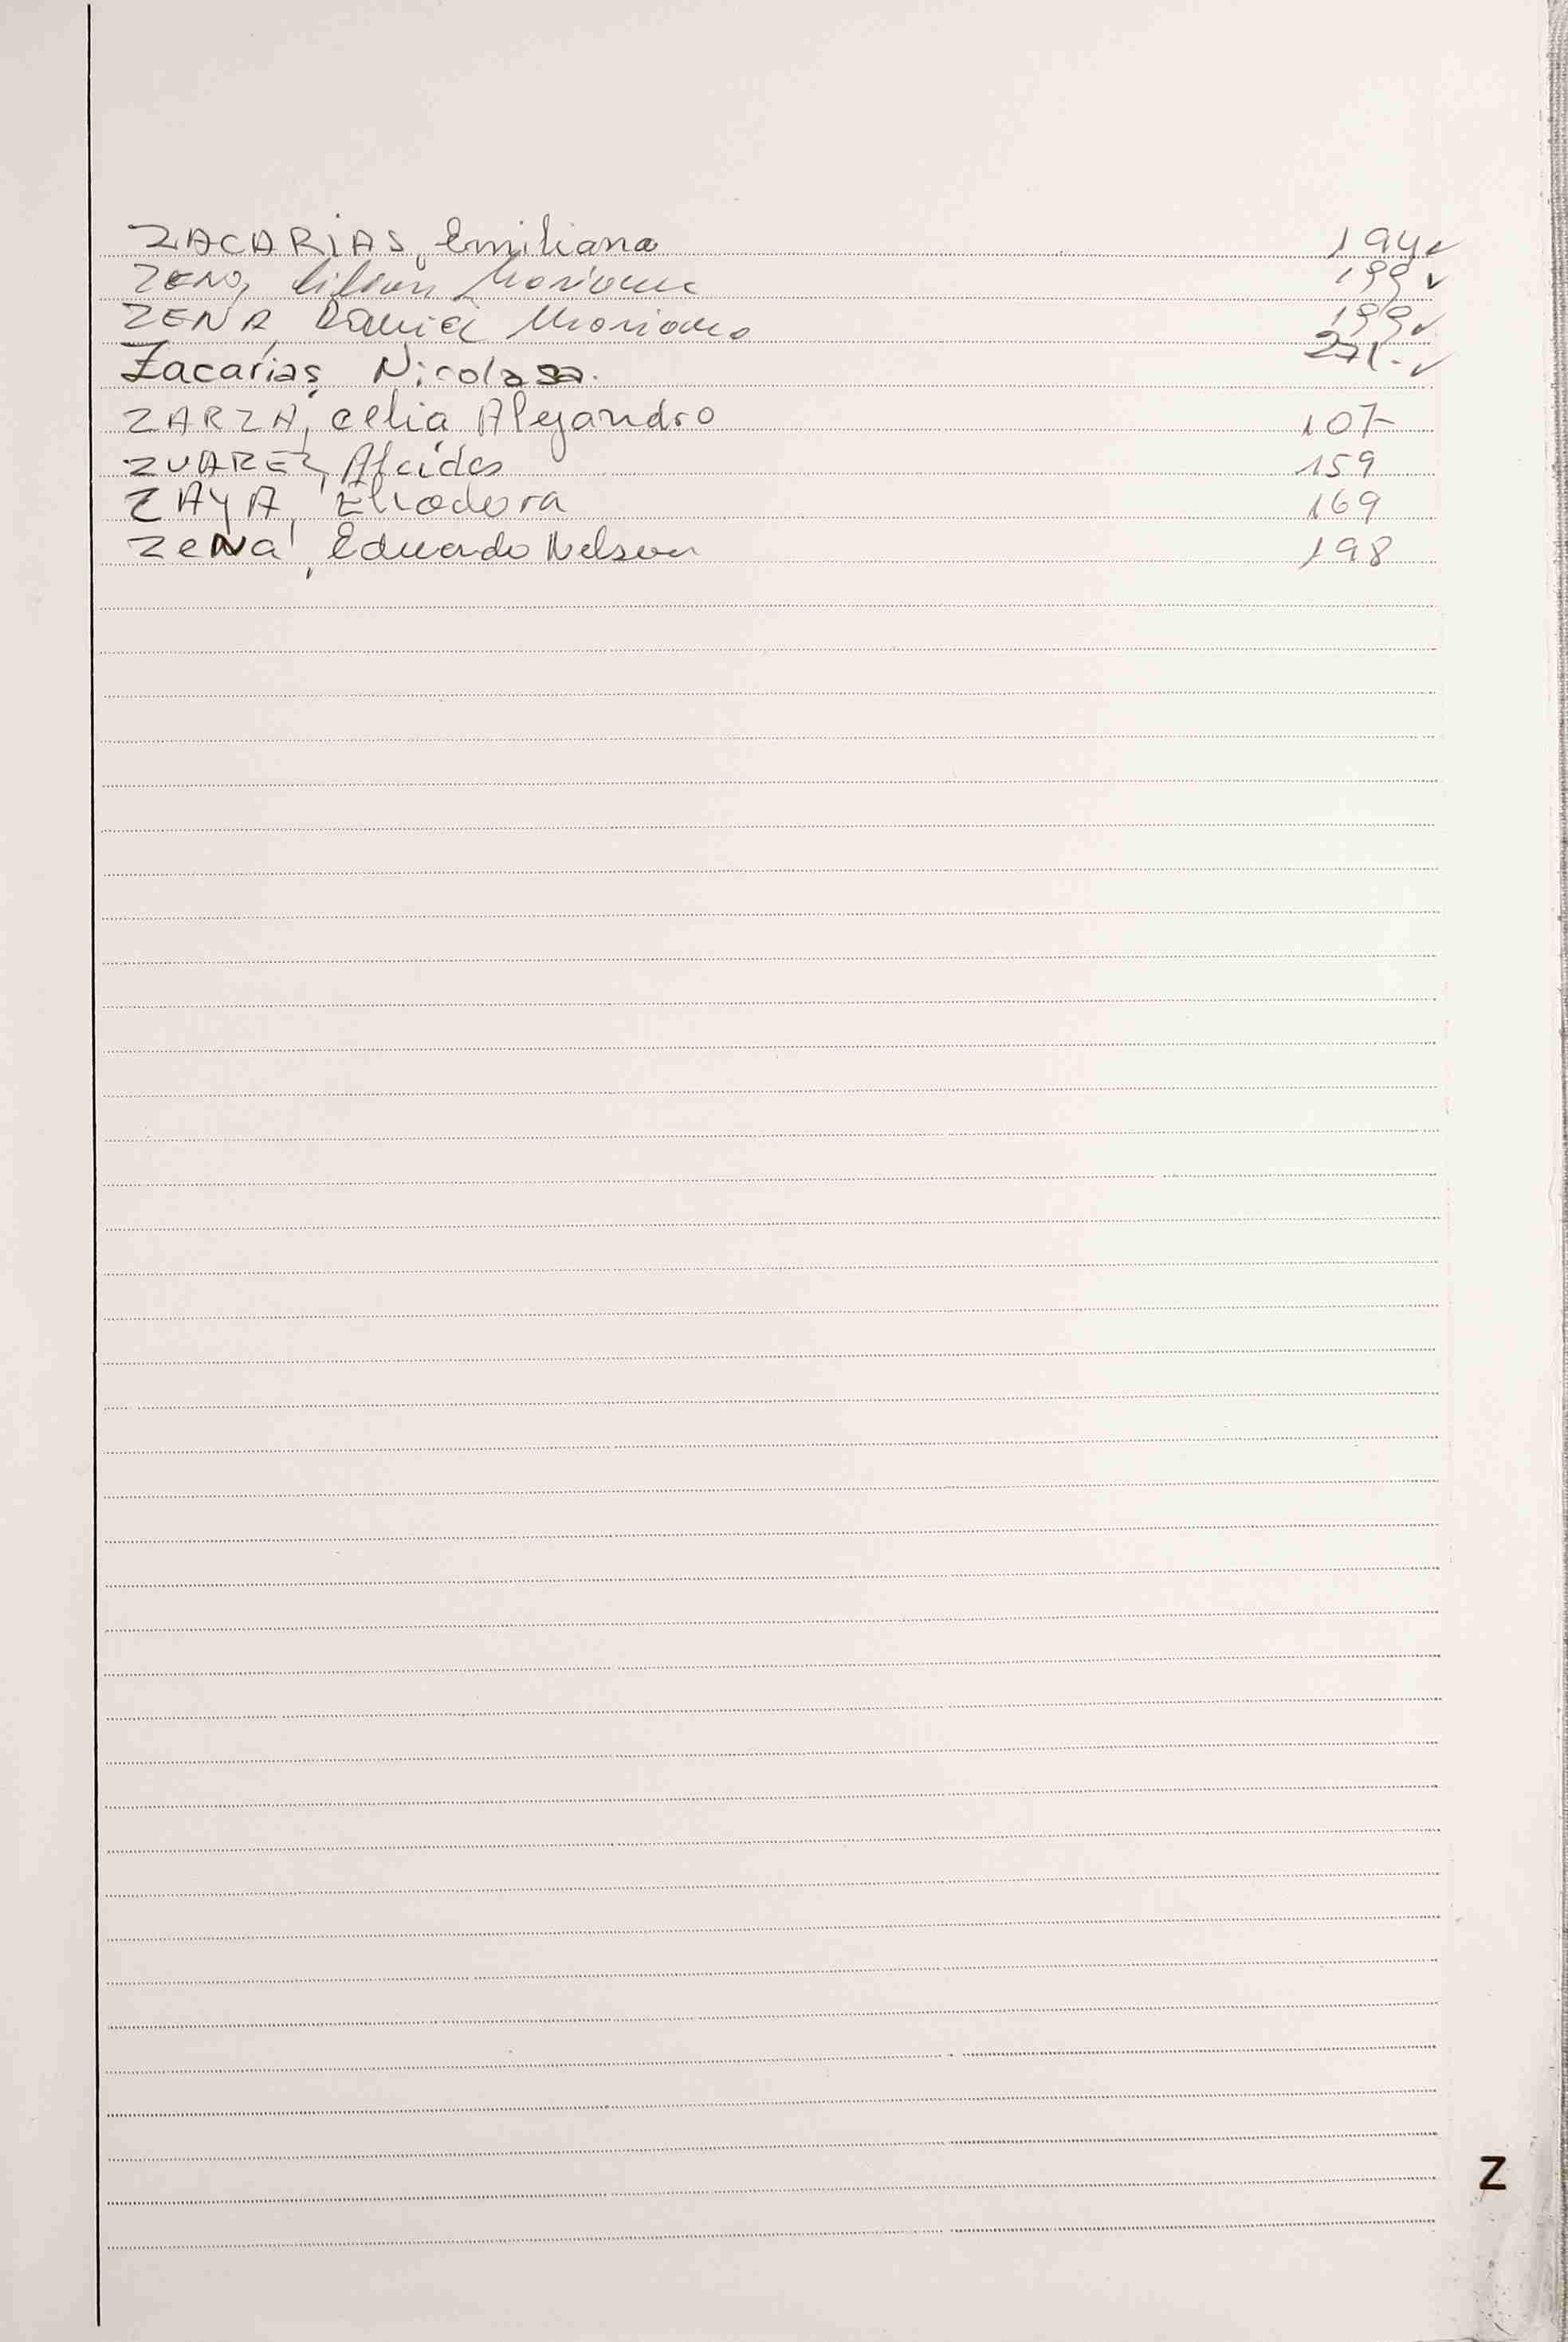 ZACARIAS, Emiliana 194 ✓
ZENO, Lilian Mariana 199 ✓
ZENA, Daniel Mariano 199 ✓
Zacarías, Nicolasa. 271.- ✓
ZARZA, Celia Alejandro 107
ZUAREZ, Alcides 159
ZAYA, Eliodora 169
ZeNa, Eduardo Nelson 198
Z